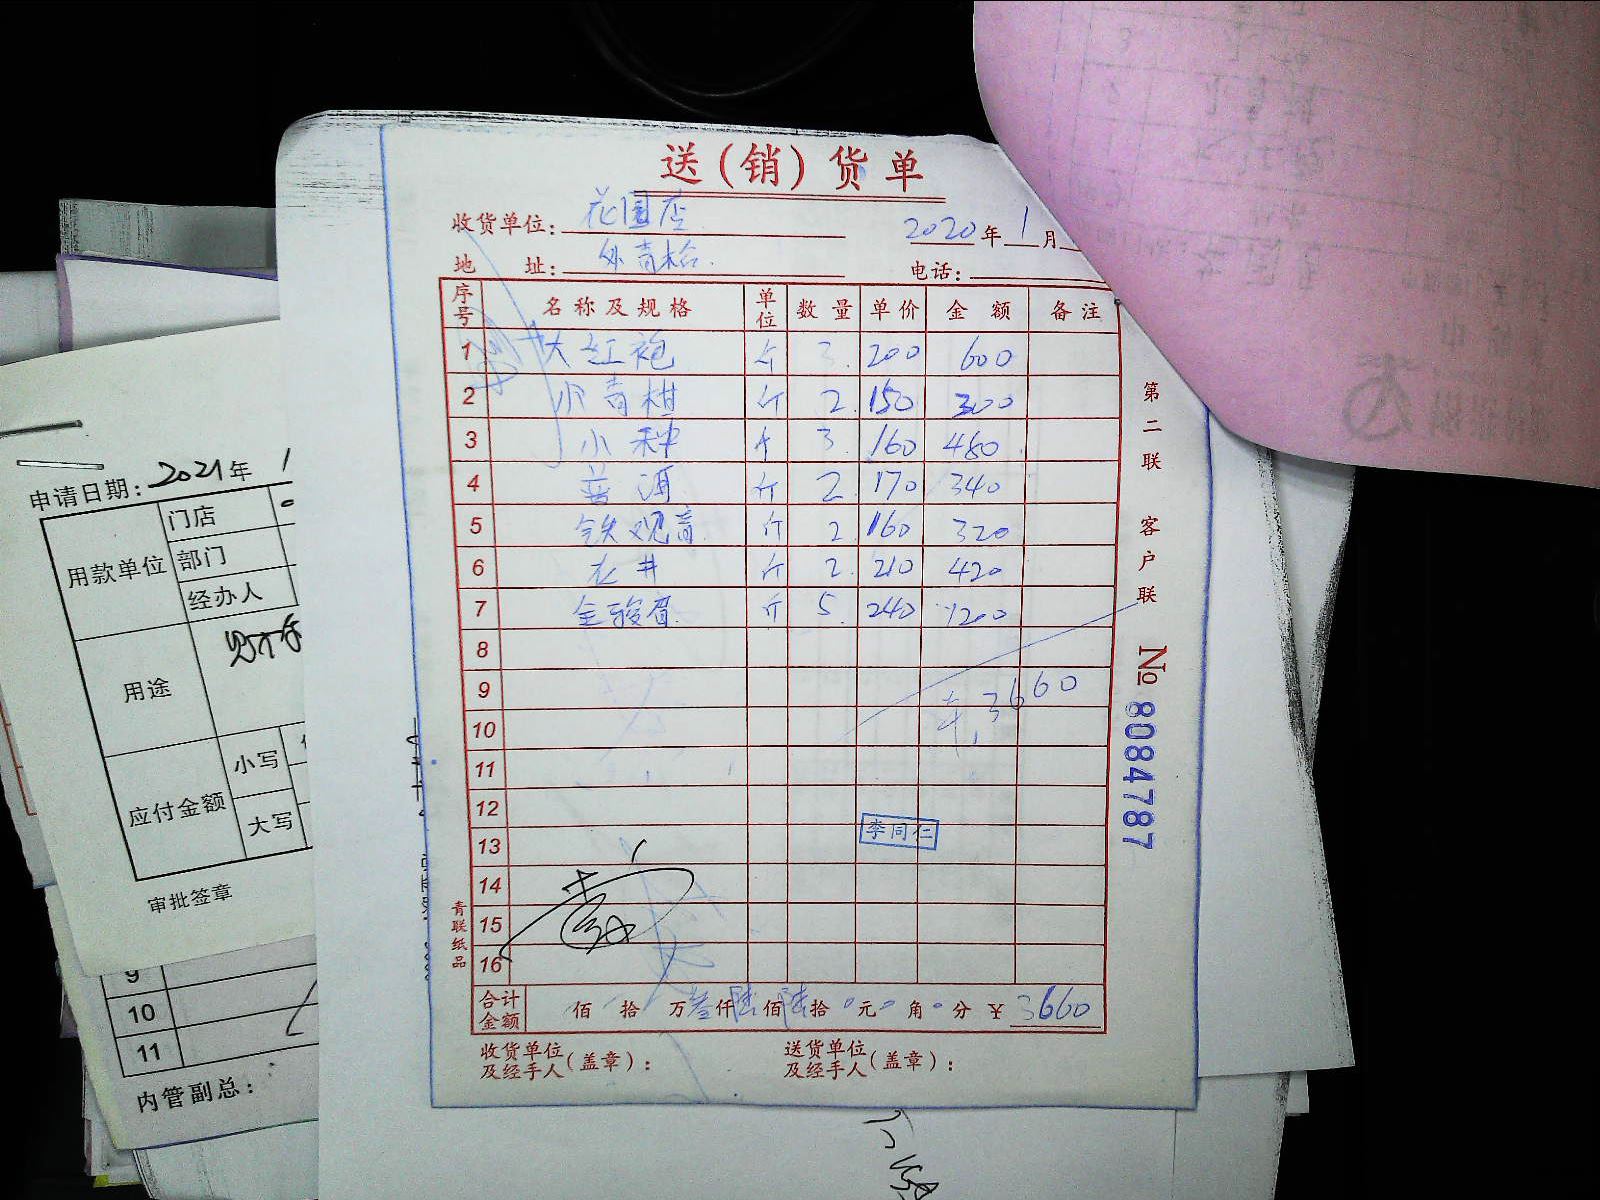 送(销)货单
收货单位: 花园店
2020年1月
地 址:
电话:
序号 名称及规格 单位 数量 单价 金额 备注
1 大红袍 斤 3. 200 600
2 小青柑 斤 2. 150 300
3 小种 斤 3. 160 480
4 普洱 斤 2 170 340
5 铁观音 斤 2 160 320
6 斤 2. 210 420
7 金骏眉 斤 5. 240 1200
8
9
3660
10
11
12
13
李同仁
14
15
16
合计金额 佰 拾 万叁仟陆佰陆拾0元0角0分 ¥ 3660
收货单位及经手人(盖章):
送货单位及经手人(盖章):
第二联 客户联
№ 8084787
青联纸品
申请日期: 2021年1
用款单位 门店
部门
经办人
用途
应付金额 小写
大写
审批签章
9
10
11
内管副总: